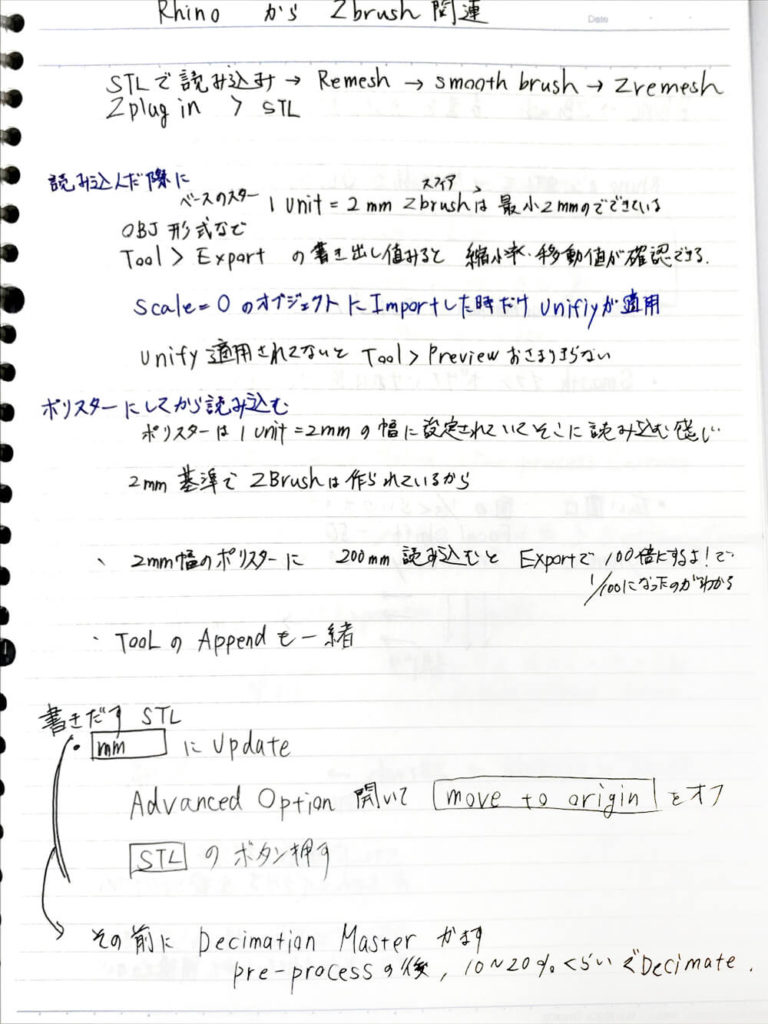 Rhino から Zbrush 関連
Date
STLで読み込み → Remesh → smooth brush → Zremesh
Zplugin > STL
読み込んだ際に
スフィア
ベースのスター 1 unit = 2mm Zbrushは 最小2mmのでできている
OBJ 形式など
Tool > Export の書き出し値みると 縮小率・移動値が確認できる.
Scale=0 のオブジェクトにImportした時だけ Unifiyが適用
Unify 適用されてないと Tool > Preview おさまりきらない
ポリスターにしてから読み込む
ポリスターは 1 unit = 2mm の幅に設定されていてそこに読み込む感じ
2mm 基準で ZBrushは作られているから
、 2mm幅のポリスターに 200mm 読み込むと Exportで 100倍にするよ!で
1/100になったのがわかる
・ TooLの Appendも一緒
書きだす STL
・ mm に Update
Advanced Option 開いて move to origin をオフ
STL のボタン押す
その前に Decimation Master かます
pre-processの後, 10~20%くらいぐDecimate.